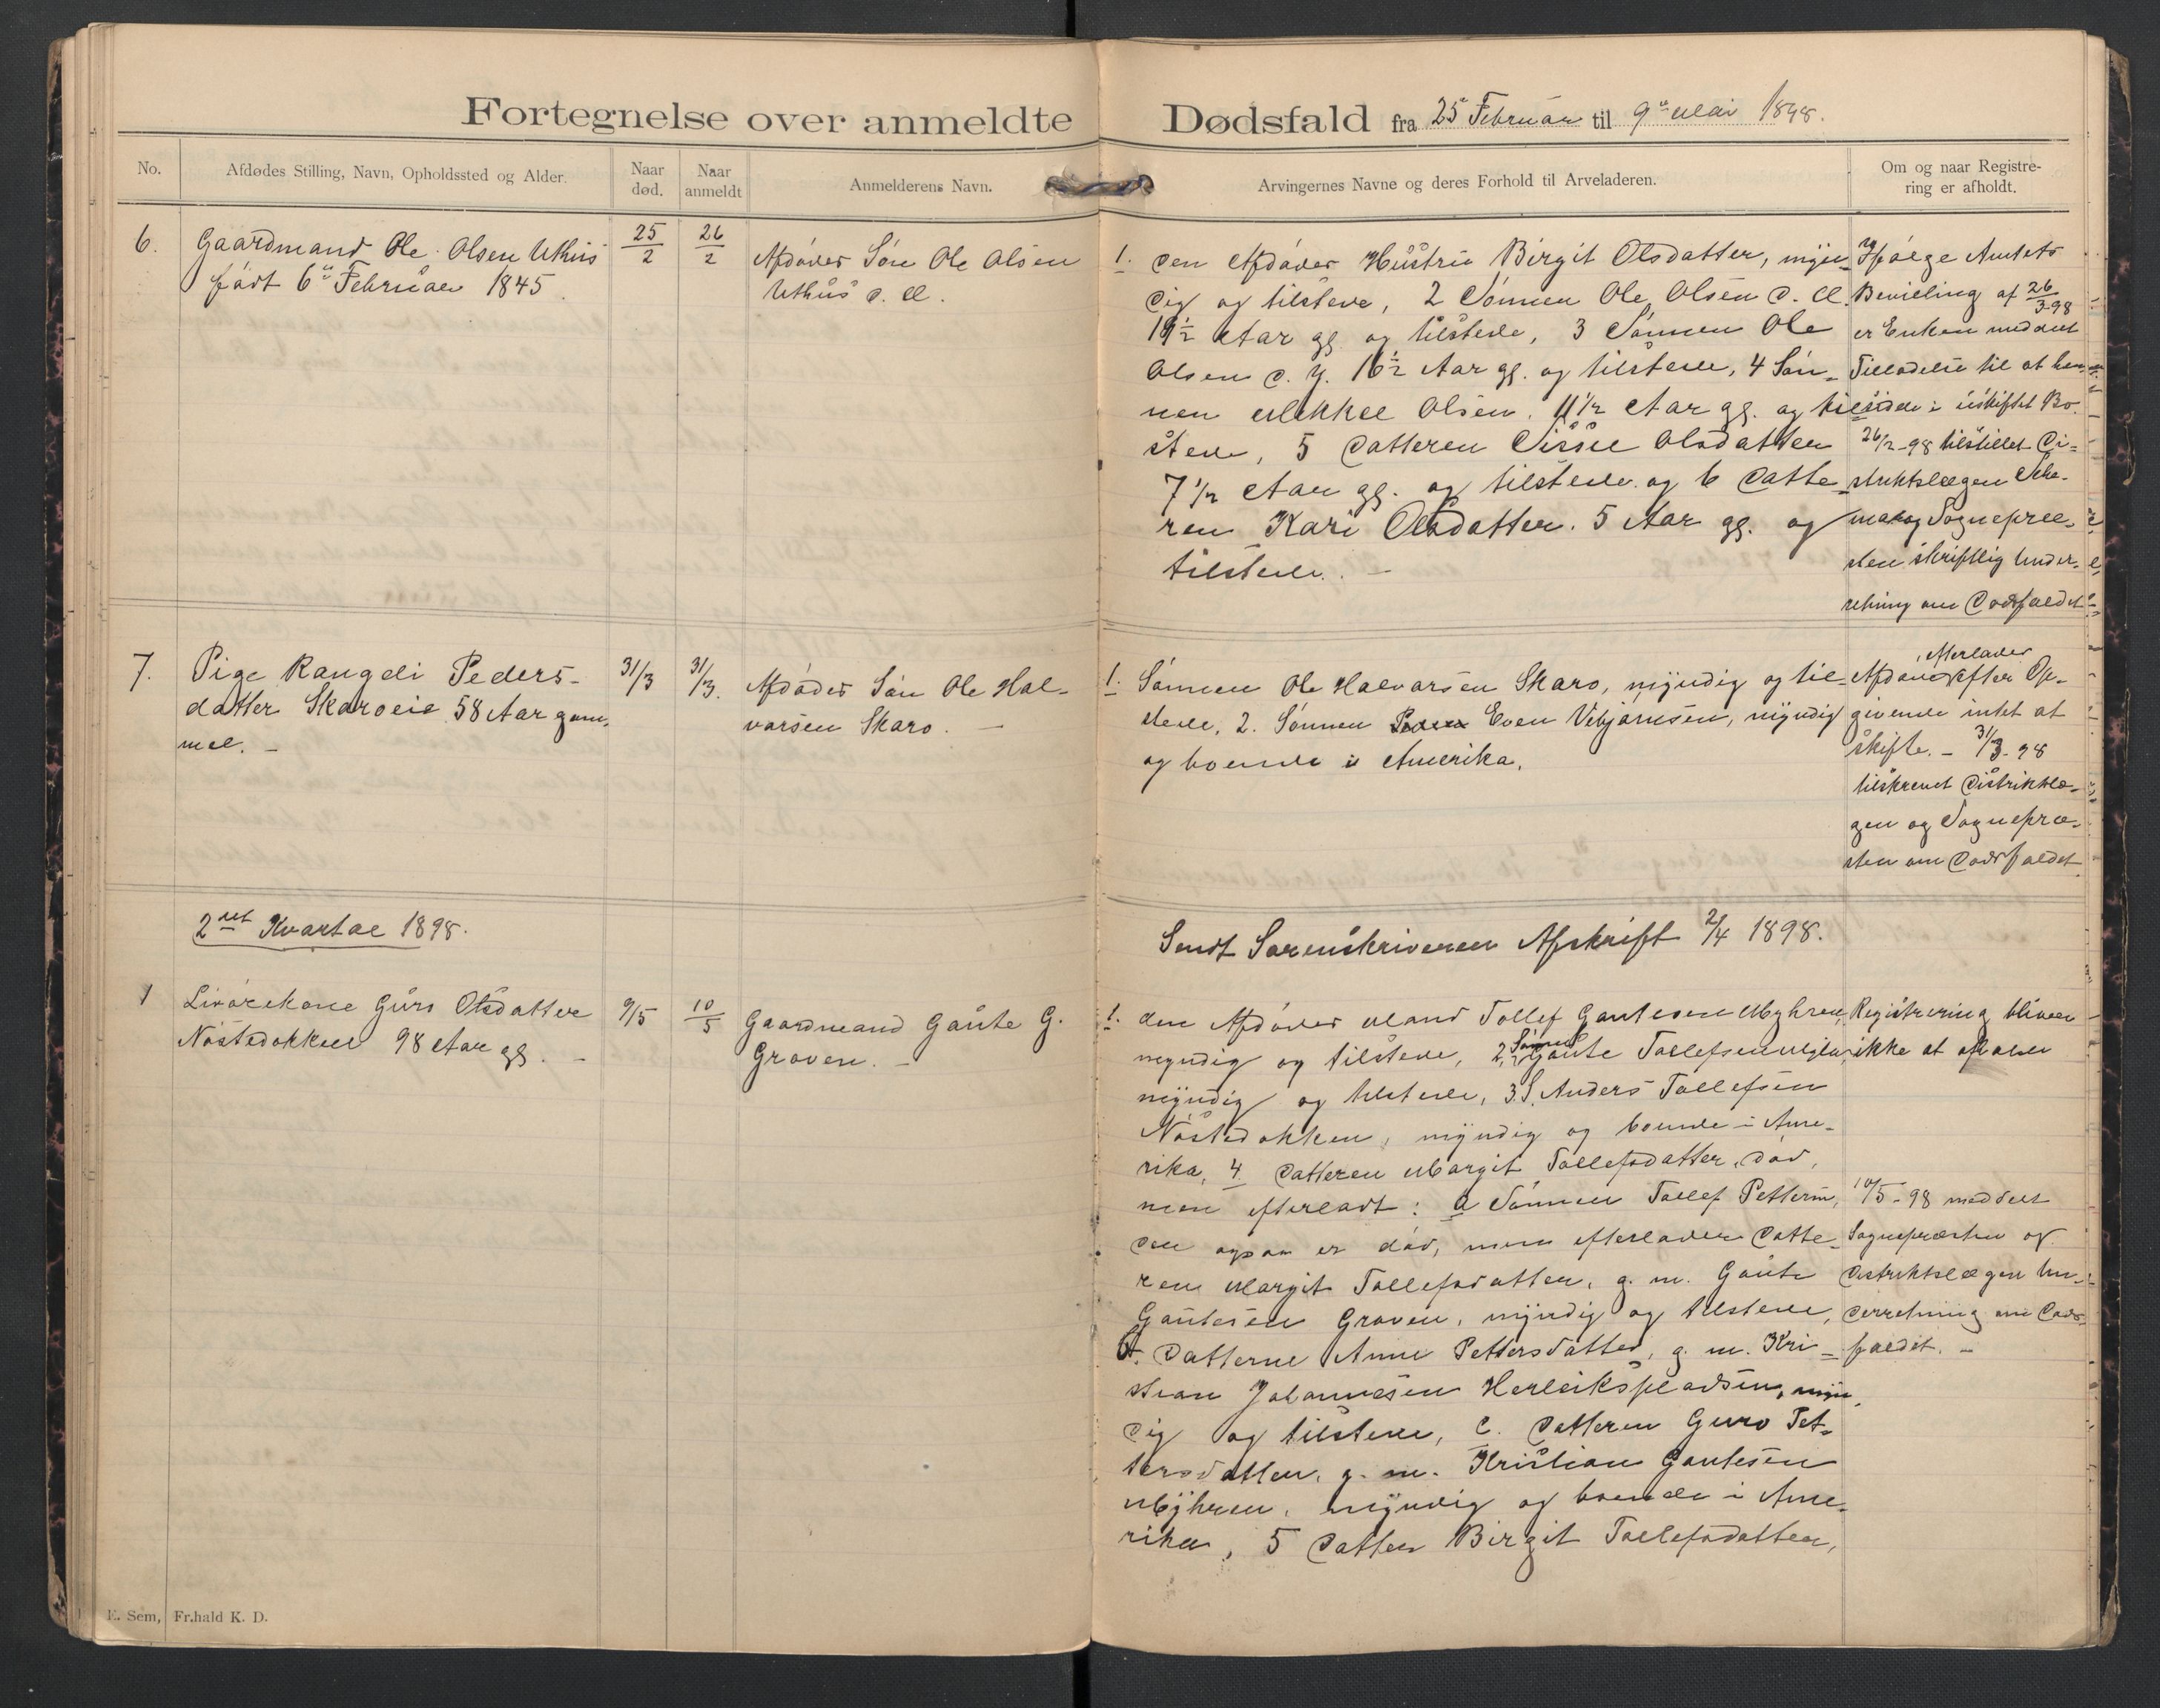 Fortegnelse over anmeldte Dødsfald fra 25 Februar til 9de Mai 1898.
No.
Afdødes Stilling, Navn, Opholdssted og Alder.
Naar død.
Naar anmeldt
Anmelderens Navn.
Arvingernes Navne og deres Forhold til Arveladeren.
Om og naar Registre-
ring er afholdt.
6.
Gaardmand Ole Olsen Uthus
født 6te Februar 1845.
25/2
26/2
Afdødes Søn Ole Olsen
Uthus d. Æ.
1. den Afdødes Hustru Birgit Olsdatter, myn-
dig og tilstede, 2 Sønnen Ole Olsen d. Æ.
19½ Aar gl. og tilstede, 3 Sønnen Ole
Olsen d. y. 16½ Aar gl. og tilstede, 4 Søn-
nen Mikkel Olsen. 11½ Aar gl. og til-
stede, 5 Datteren Sissel Olsdatter
7½ Aar gl. og tilstede og 6 Datte-
ren Kari Olsdatter. 5 Aar gl. og
tilstede. –
Ifølge Amtets
Bevilling af 26/3 98
er Enken meddelt
Tilladelse til at hen-
sidde i uskiftet Bo.
26/2-98 tilstillet Di-
striktslægen
og Sognepræ-
sten skriftlig Under-
retning om Dødsfaldet
7.
Pige Rangdi Peders-
datter Skaroeie 58 Aar gam-
mel. –
31/3
31/3.
Afdødes Søn Ole Hal-
varsen Skaro. –
1. Sønnen Ole Halvarsen Skaro, myndig og til-
stede, 2. Sønnen Even Vebjørnsen, myndig
og boende i Amerika.
efterlader
Afdøde efter Op-
givende intet at
skifte. – 31/3-98
tilskrevet Distriktslæ-
gen og Sognepræ-
sten om Dødsfaldet.
2det Kvartal 1898.
Sendt Sorenskriveren Afskrift 2/4 1898.
1
Livørekone Guro Olsdatter
Nøstedokken 98 Aar gl. –
9/5
10/5
Gaardmand Gaute G.
Groven. –
1. den Afdødes Mand Tollef Gautesen Myhren,
myndig og tilstede, 2, Sønnen Gaute Tollefsen Myhren,
myndig og tilstede, 3. S. Anders Tollefsen
Nøstedokken, myndig og boende i Ame-
rika, 4 Datteren Margit Tollefsdatter, død,
men efterladt: a Sønnen Tollef Pettersen,
der ogsaa er død, men efterlader Datte-
ren Margit Tollefsdatter, g. m. Gaute
Gautesen Groven, myndig og tilstede,
b. Datterne Anne Pettersdatter, g. m. Kri-
stian Johannesen Herleikspladsen, myn-
dig og tilstede, c. Datteren Guro Pet-
tersdatter, g. m. Kristian Gautesen
Myhren, myndig og boende i Ame-
rika, 5 Datter Birgit Tollefsdatter,
Registrering bliver
ikke at afholde
10/5-98 meddelt
Sognepræsten og
Distriktslægen Un-
derretning om Døds-
faldet. –
E. Sem, Fr.hald K. D.